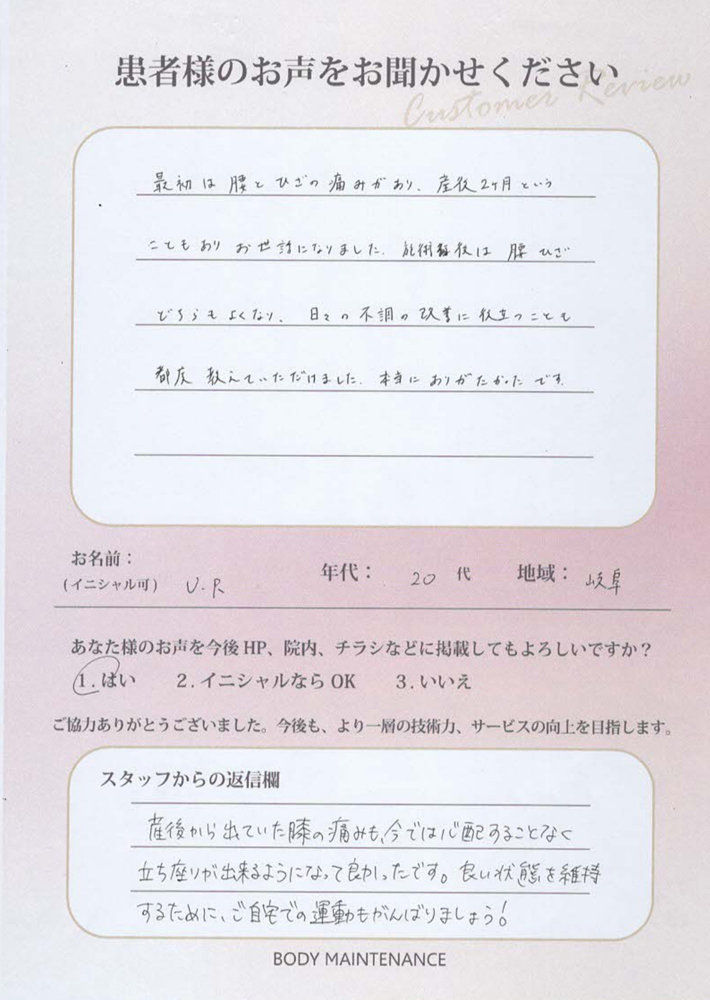 患者様のお声をお聞かせください
Customer Review
最初は 腰と ひざの 痛みがあり、産後2ヶ月という
こともあり お世話になりました。施術後は 腰 ひざ
どちらもよくなり、日々の不調の改善に役立つことも
都度 教えていただけました。本当に ありがたかったです。
お名前：
(イニシャル可) U.R 年代： 20 代 地域： 岐阜
あなた様のお声を今後 HP、院内、チラシなどに掲載してもよろしいですか？
1. はい 2. イニシャルなら OK 3. いいえ
ご協力ありがとうございました。今後も、より一層の技術力、サービスの向上を目指します。
スタッフからの返信欄
産後から出ていた膝の痛みも、今では心配することなく
立ち座りが出来るようになって良かったです。良い状態を維持
するために、ご自宅での運動もがんばりましょう！
BODY MAINTENANCE